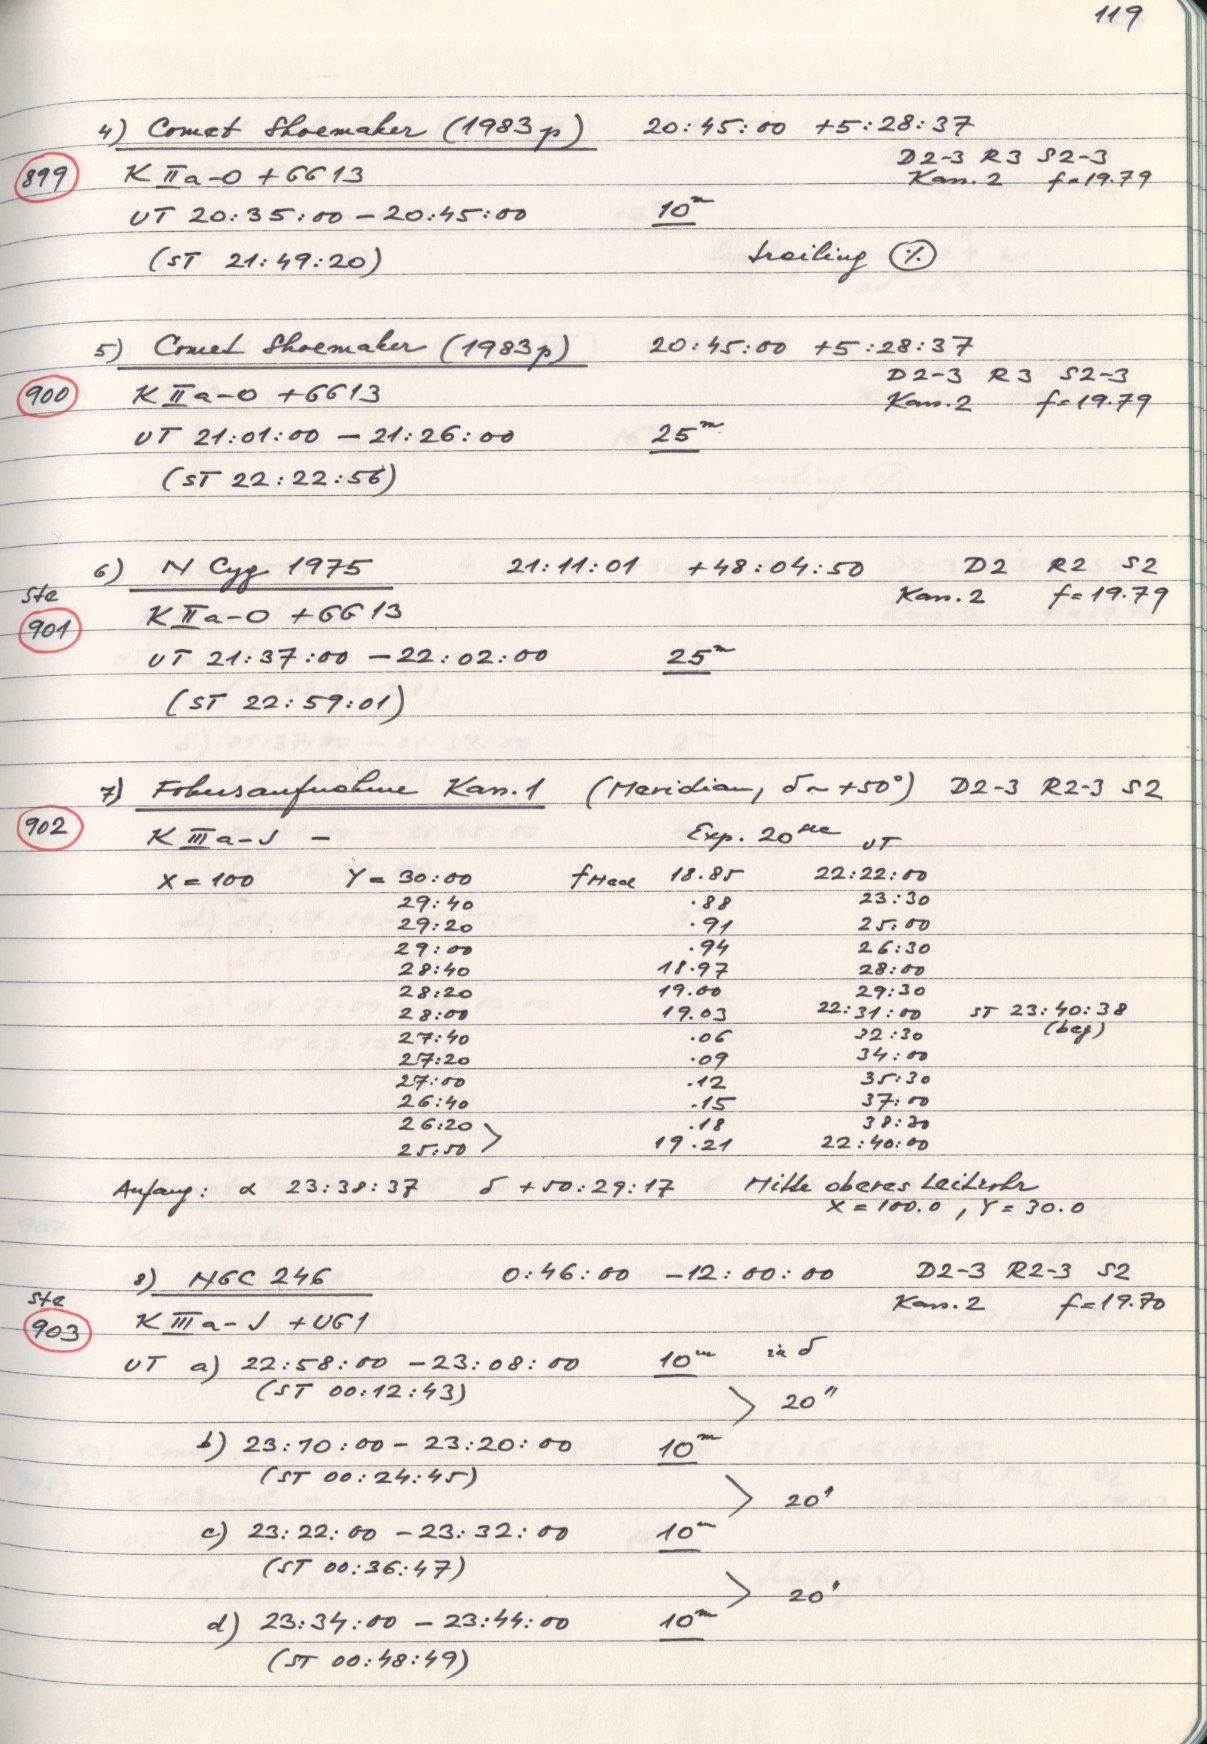 119
4) Comet Shoemaker (1983p) 20:45:00 +5:28:37
D2-3 R3 S2-3
899 K IIa-O + GG13 Kass.2 f=19.79
UT 20:35:00 - 20:45:00 10m
(ST 21:49:20) trailing
5) Comet Shoemaker (1983p) 20:45:00 +5:28:37
D2-3 R3 S2-3
900 K IIa-O + GG13 Kass.2 f=19.79
UT 21:01:00 - 21:26:00 25m
(ST 22:22:56)
6) N Cyg 1975 21:11:01 +48:04:50 D2 R2 S2
Ste Kass.2 f=19.79
901 K IIa-O + GG13
UT 21:37:00 - 22:02:00 25m
(ST 22:59:01)
7) Fokusaufnahme Kass.1 (Meridian, δ ~ +50°) D2-3 R2-3 S2
902 K IIIa-J - Exp. 20sec UT
X = 100 Y = 30:00 18.85 22:22:00
29:40 .88 23:30
29:20 .91 25:00
29:00 .94 26:30
28:40 18.97 28:00
28:20 19.00 29:30
28:00 19.03 22:31:00 ST 23:40:38
27:40 .06 32:30 (beg)
27:20 .09 34:00
27:00 .12 35:30
26:40 .15 37:00
26:20 .18 38:30
25:50 > 19.21 22:40:00
Anfang: α 23:38:37 δ +50:29:17 Mitte oberes Leitrohr
X = 100.0, Y = 30.0
8) NGC 246 0:46:00 -12:00:00 D2-3 R2-3 S2
Ste Kass.2 f=19.70
903 K IIIa-J + UG1
UT a) 22:58:00 - 23:08:00 10m in δ
(ST 00:12:43) > 20"
b) 23:10:00 - 23:20:00 10m
(ST 00:24:45) > 20"
c) 23:22:00 - 23:32:00 10m
(ST 00:36:47) > 20"
d) 23:34:00 - 23:44:00 10m
(ST 00:48:49)